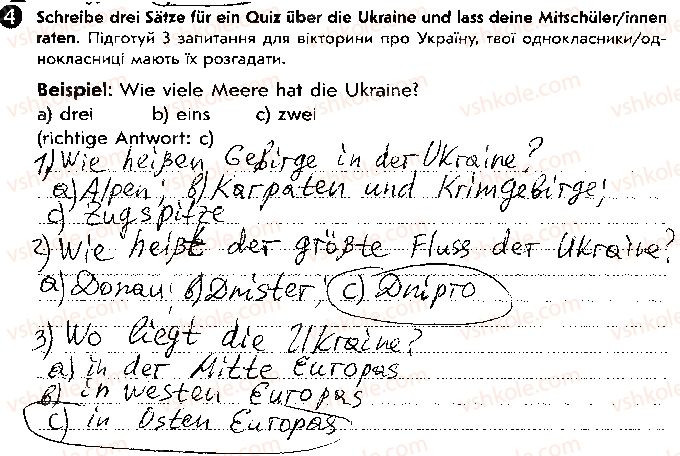 4 Schreibe drei Sätze für ein Quiz über die Ukraine und lass deine Mitschüler/innen
raten. Підготуй 3 запитання для вікторини про Україну, твої однокласники/од-
нокласниці мають їх розгадати.
Beispiel: Wie viele Meere hat die Ukraine?
a) drei b) eins c) zwei
(richtige Antwort: c)
1) Wie heißen Gebirge in der Ukraine?
a) Alpen; b) Karpaten und Krimgebirge;
c) Zugspitze
2) Wie heißt der größte Fluss der Ukraine?
a) Donau; b) Dnister; c) Dnipro
3) Wo liegt die Ukraine?
a) in der Mitte Europas
b) in westen Europas
c) in Osten Europas